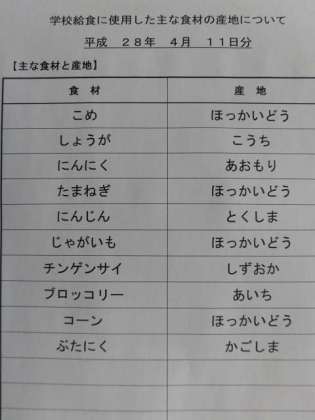 学校給食に使用した主な食材の産地について
平成 28年 4月 11日分
【主な食材と産地】
食 材 産 地
こめ ほっかいどう
しょうが こうち
にんにく あおもり
たまねぎ ほっかいどう
にんじん とくしま
じゃがいも ほっかいどう
チンゲンサイ しずおか
ブロッコリー あいち
コーン ほっかいどう
ぶたにく かごしま